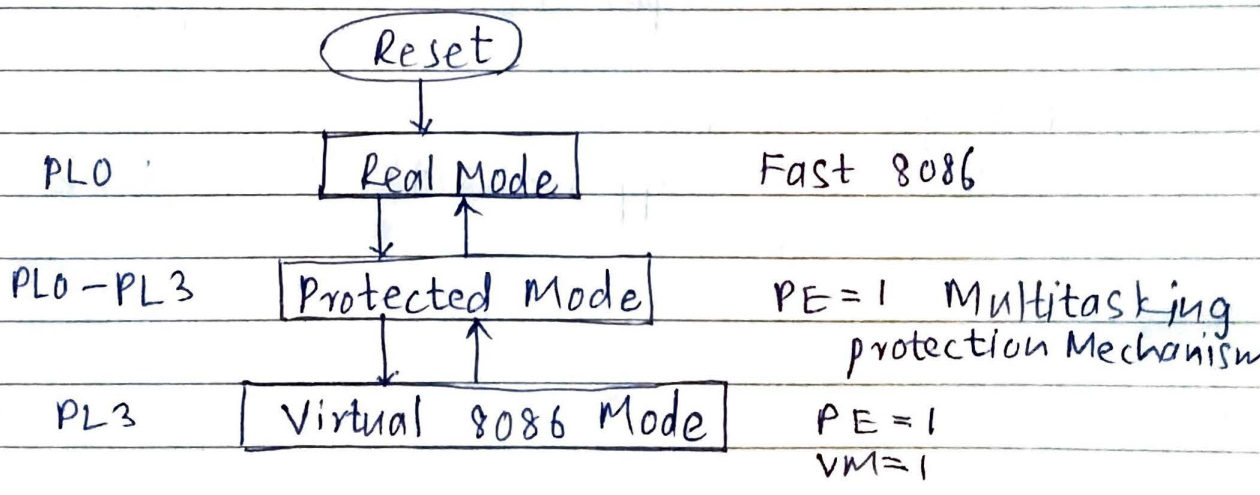 Reset
PL0 Real Mode Fast 8086
PL0-PL3 Protected Mode PE=1 Multitasking
protection Mechanism
PL3 Virtual 8086 Mode PE=1
VM=1